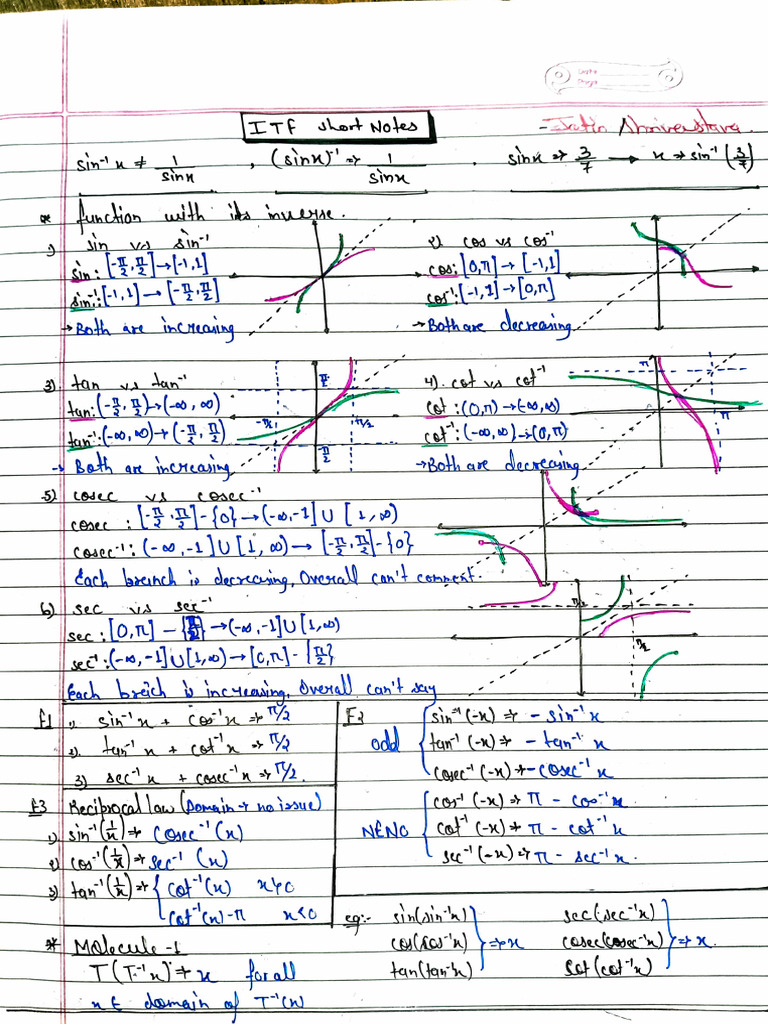 ITF Short Notes
sin⁻¹x ≠ 1/sinx , (sinx)⁻¹ ⇒ 1/sinx , sinx ⇒ 3/7 → x ⇒ sin⁻¹(3/7)
* function with its inverse.
1) sin vs sin⁻¹
sin: [-π/2, π/2] → [-1,1]
sin⁻¹: [-1,1] → [-π/2, π/2]
→ Both are increasing
2) cos vs cos⁻¹
cos: [0,π] → [-1,1]
cos⁻¹: [-1,1] → [0,π]
→ Both are decreasing
3) tan vs tan⁻¹
tan: (-π/2, π/2) → (-∞, ∞)
tan⁻¹: (-∞, ∞) → (-π/2, π/2)
→ Both are increasing
π/2
-π/2
π/2
-π/2
4) cot vs cot⁻¹
cot: (0,π) → (-∞,∞)
cot⁻¹: (-∞,∞) → (0,π)
→ Both are decreasing
π
π
5) cosec vs cosec⁻¹
cosec : [-π/2, π/2] - {0} → (-∞,-1] ∪ [1,∞)
cosec⁻¹: (-∞,-1] ∪ [1,∞) → [-π/2, π/2] - {0}
Each breinch is decreasing, Overall can't comment.
6) sec vs sec⁻¹
sec : [0,π] - {π/2} → (-∞,-1] ∪ [1,∞)
sec⁻¹: (-∞,-1] ∪ [1,∞) → [0,π] - {π/2}
Each breich is increasing, Overall can't say
π/2
π/2
F1 1) sin⁻¹x + cos⁻¹x ⇒ π/2
2) tan⁻¹x + cot⁻¹x ⇒ π/2
3) sec⁻¹x + cosec⁻¹x ⇒ π/2
F2
odd { sin⁻¹(-x) ⇒ - sin⁻¹x
tan⁻¹(-x) ⇒ - tan⁻¹x
cosec⁻¹(-x) ⇒ - cosec⁻¹x
NENO { cos⁻¹(-x) ⇒ π - cos⁻¹x
cot⁻¹(-x) ⇒ π - cot⁻¹x
sec⁻¹(-x) ⇒ π - sec⁻¹x.
F3 Reciprocal law (Domain → no issue)
1) sin⁻¹(1/x) ⇒ cosec⁻¹(x)
2) cos⁻¹(1/x) ⇒ sec⁻¹(x)
3) tan⁻¹(1/x) ⇒ { cot⁻¹(x) x>0
cot⁻¹(x)-π x<0
* Molecule -1
T(T⁻¹x) ⇒ x for all
x ∈ domain of T⁻¹(x)
eg:- sin(sin⁻¹x)
cos(cos⁻¹x) } ⇒ x
tan(tan⁻¹x)
sec(sec⁻¹x)
cosec(cosec⁻¹x) } ⇒ x.
cot(cot⁻¹x)